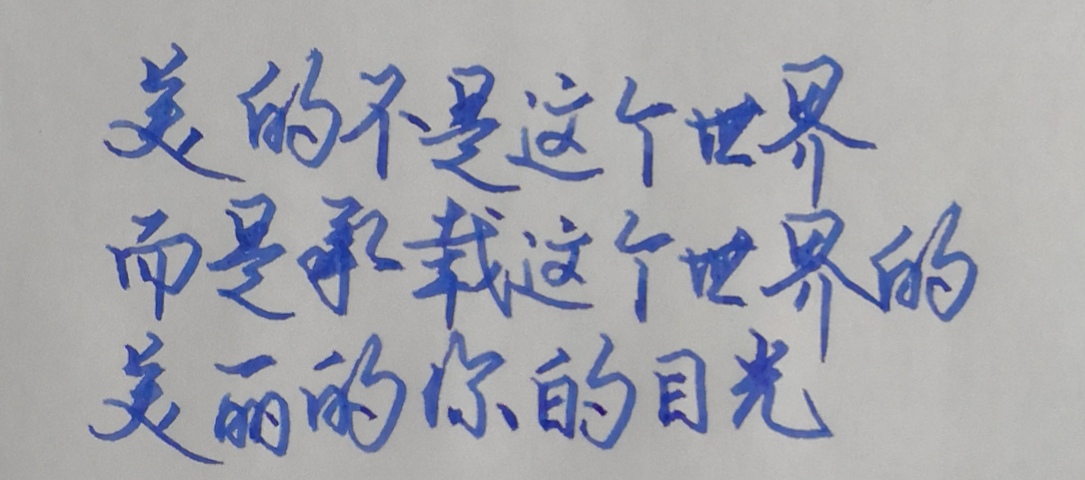 美的不是这个世界
而是承载这个世界的
美丽的你的目光